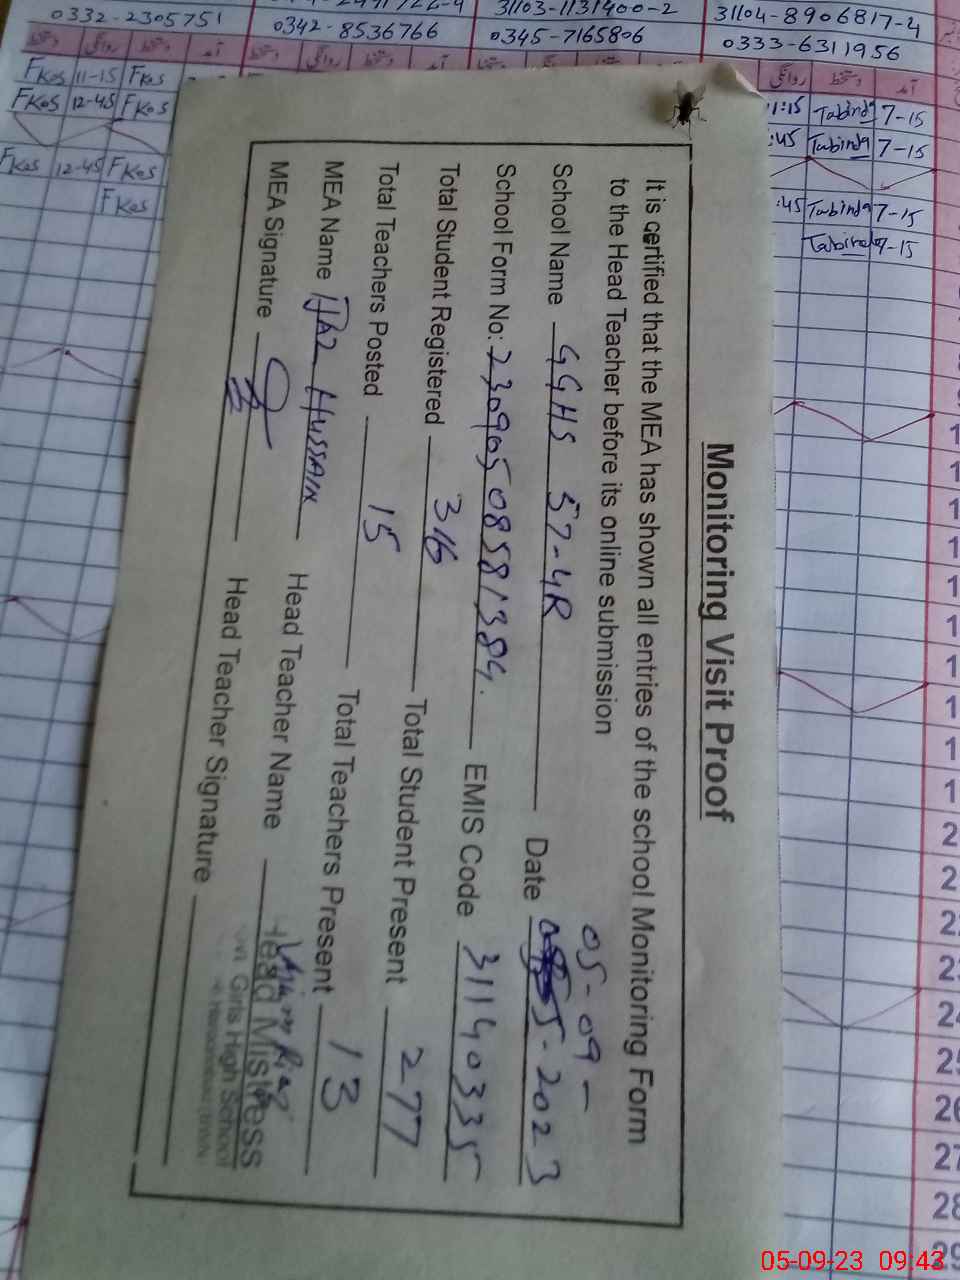 0332-2305751
0342-8536766
31103-1131400-2
0345-7165806
31104-8906817-4
0333-6311956
FKos 11-15 FKos
FKos 12-45 FKos
FKos 12-45 FKos
FKos
1:15 Tabinda 7-15
:45 Tabinda 7-15
:45 Tabinda 7-15
Tabinda 7-15
Monitoring Visit Proof
It is certified that the MEA has shown all entries of the school Monitoring Form
to the Head Teacher before its online submission
05-09-
School Name GGHS 57-4R Date 2023
School Form No: 23090508581384. EMIS Code 31140335
Total Student Registered 316 Total Student Present 277
Total Teachers Posted 15 Total Teachers Present 13
MEA Name HUSSAIN Head Teacher Name
MEA Signature Head Teacher Signature
Head Mistress
Girls High School
24
25
26
27
28
29
05-09-23 09:43